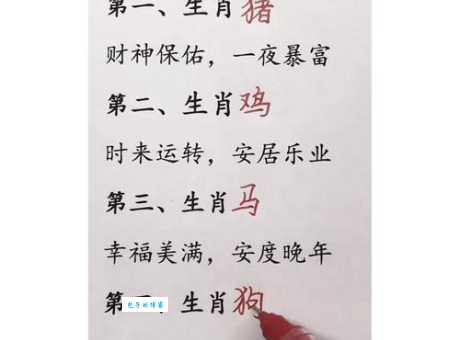 第一、生肖猪
财神保佑，一夜暴富
第二、生肖鸡
时来运转，安居乐业
第三、生肖马
幸福美满，安度晚年
第、生肖狗